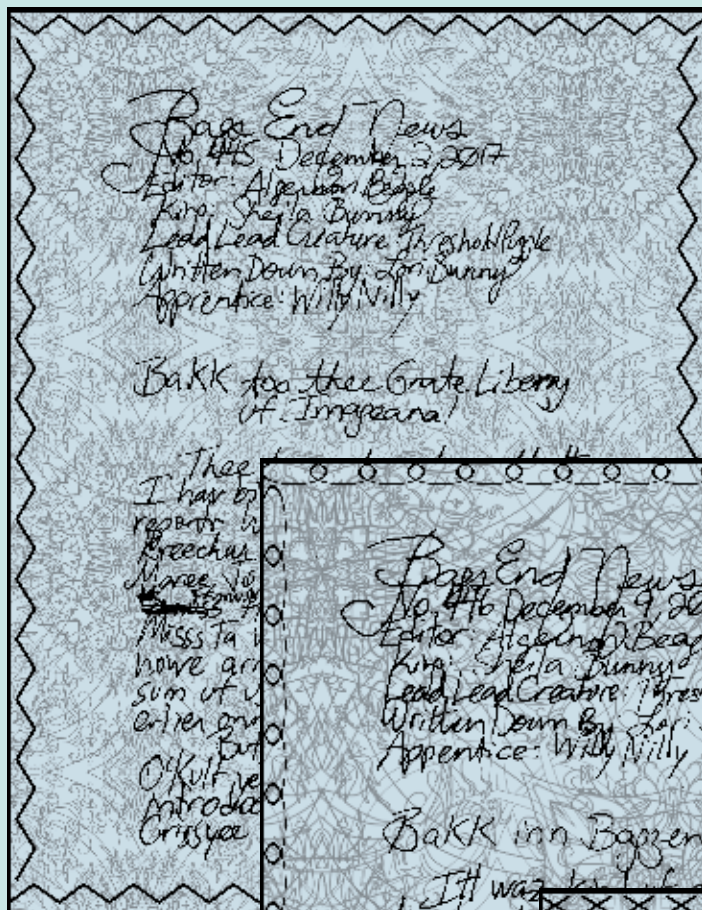 Bags End News
No. 445 December 2, 2017
Editor: Algernon Beagle
King: Sheila Bunny
Lead Lead Creature: Threshold Purple
Written Down By: Lori Bunny
Apprentice: Willy Nilly
BaKK too thee Grate Liberry
uf Imageana!
Thee
I hav
reportr
Kreechus
Maree
Misss Ta
howe arr
sum uf
erlier
But
O'Kult
introdoo
Grissyee
Bags End News
No. 446 December 9, 20
Editor: Algernon Beag
King: Sheila Bunny
Lead Lead Creature: Thres
Written Down By: Lori
Apprentice: Willy Nilly
BaKK inn Bagzen
Itt waz